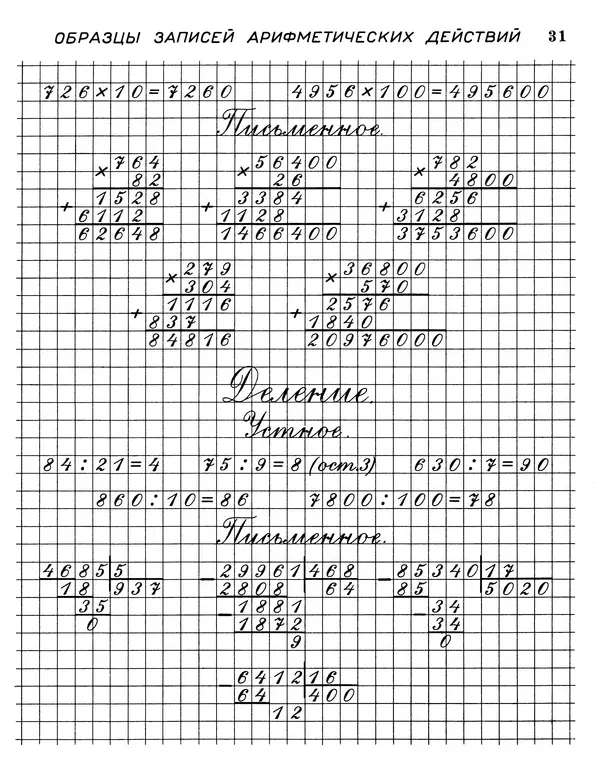 ОБРАЗЦЫ ЗАПИСЕЙ АРИФМЕТИЧЕСКИХ ДЕЙСТВИЙ 31
726×10=7260 4956×100=495600
Письменное.
×764 ×56400 ×782
82 26 4800
+ 1528 + 3384 + 6256
6112 1128 3128
62648 1466400 3753600
×279 ×36800
304 570
+ 1116 + 2576
837 1840
84816 20976000
Деление.
Устное.
84:21=4 75:9=8 (ост.3) 630:7=90
860:10=86 7800:100=78
Письменное.
4685|5 −29961|468 −85340|17
18 937 2808 64 85 5020
35 −1881 −34
0 1872 34
9 0
−6412|16
64 400
12